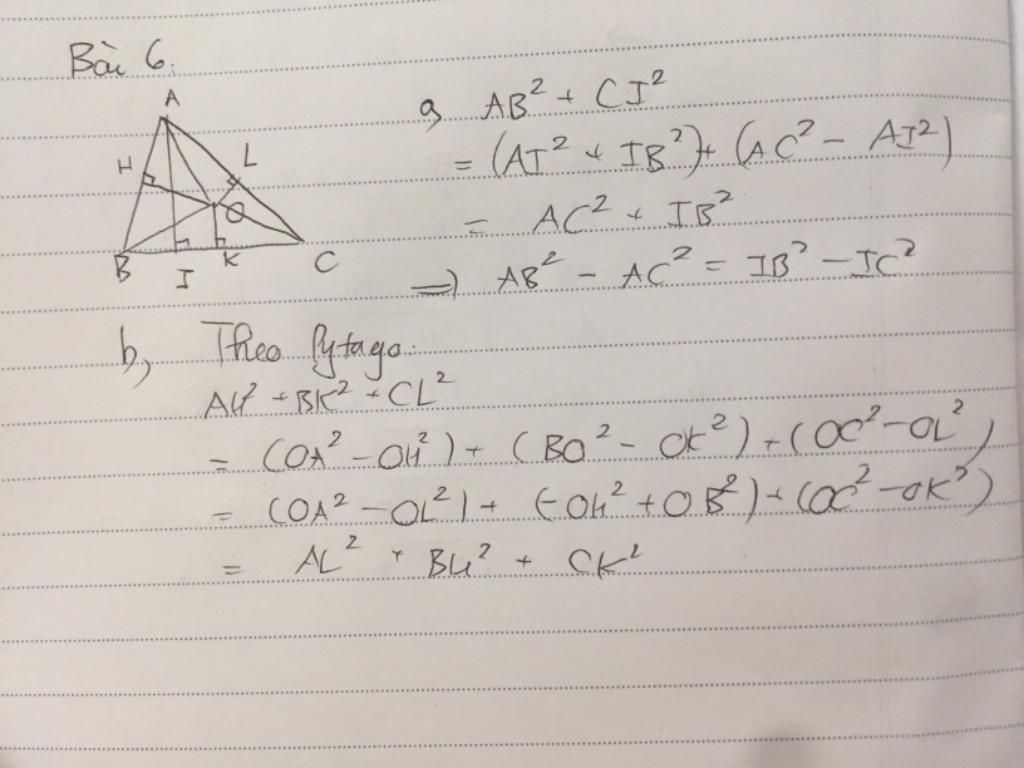 Bài 6.
A
H
L
O
B
I
K
C
a, AB² + CI²
= (AI² + IB²) + (AC² - AI²)
= AC² + IB²
=> AB² - AC² = IB² - IC²
b, Theo Pytago:
AH² + BK² + CL²
= (OA² - OH²) + (BO² - OK²) + (OC² - OL²)
= (OA² - OL²) + (-OH² + OB²) + (OC² - OK²)
= AL² + BH² + CK²